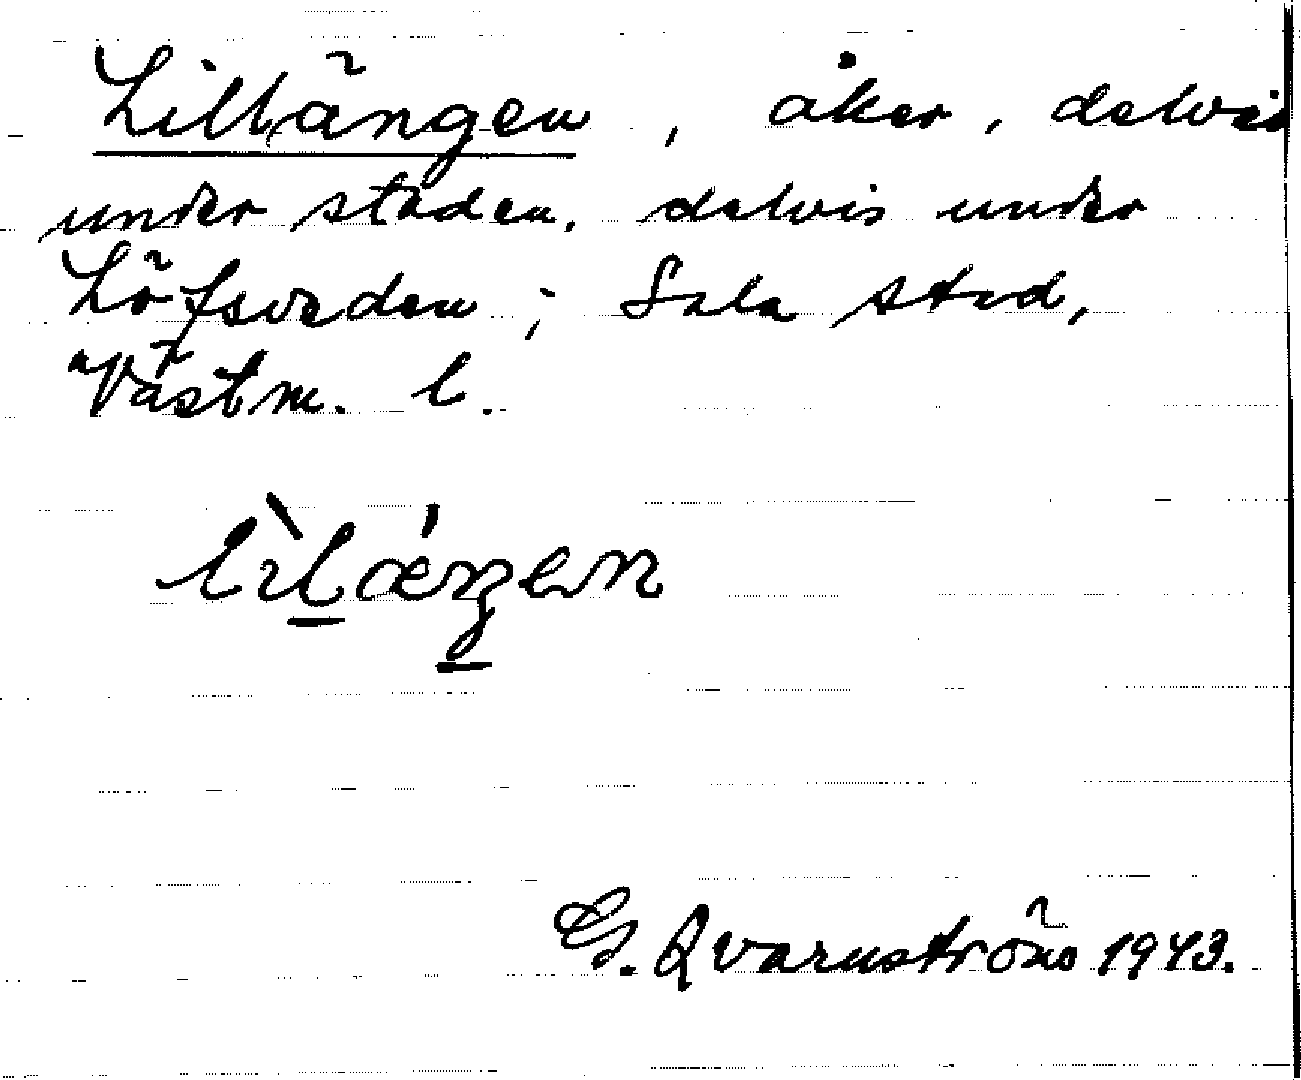 Lillängen, åker, delvis
under staden, delvis under
Löfsveden; Sala stad,
Västm. l.
lìlǽŋen
G. Qvarnström 1943.